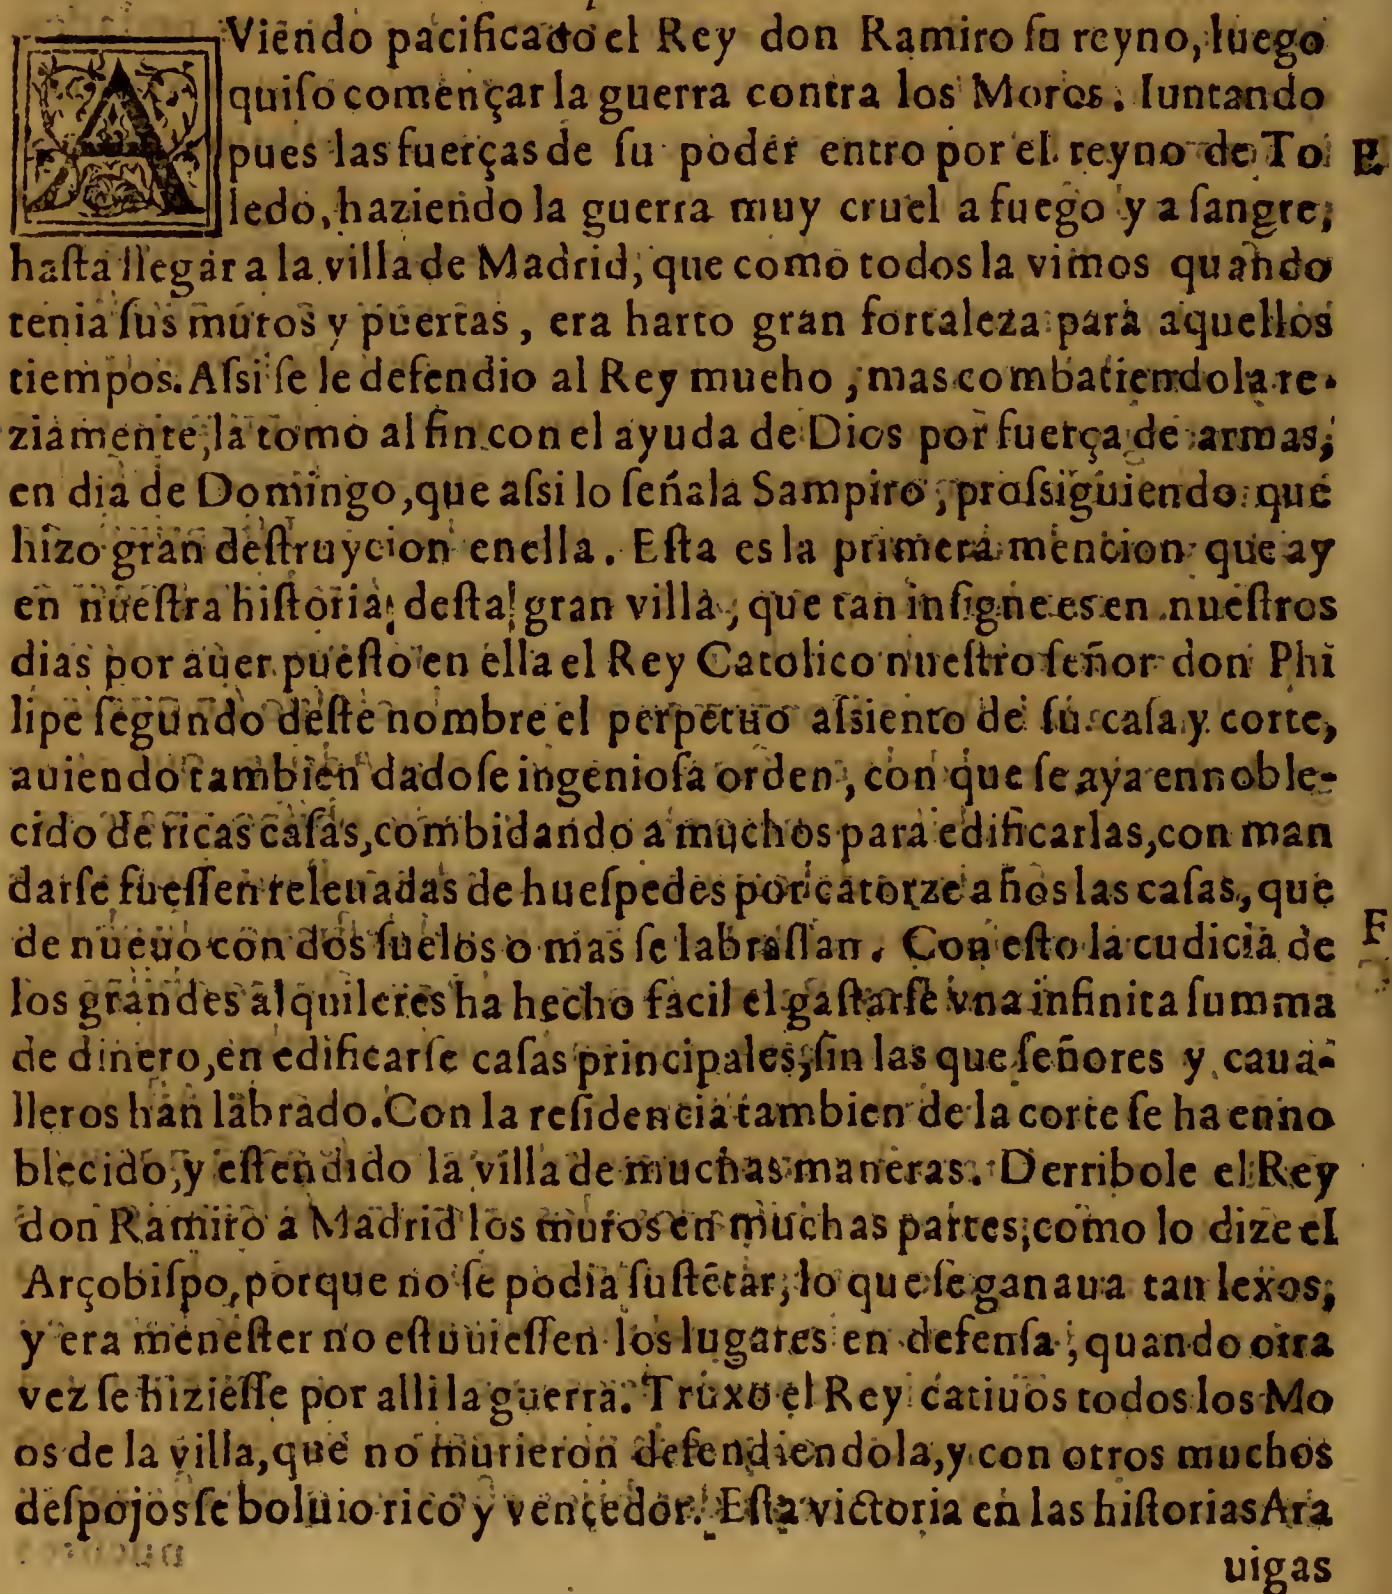 AViendo pacificado el Rey don Ramiro ſu reyno, luego
quiſo començar la guerra contra los Moros. Iuntando
pues las fuerças de ſu poder entro por el reyno de To
E
ledo, haziendo la guerra muy cruel a fuego y a ſangre,
haſta llegar a la villa de Madrid, que como todos la vimos quando
tenia ſus muros y puertas, era harto gran fortaleza para aquellos
tiempos. Aſsi ſe le defendio al Rey mucho, mas combatiendola re-
ziamente, la tomo al fin con el ayuda de Dios por fuerça de armas,
en dia de Domingo, que aſsi lo ſeñala Sampiro, proſsiguiendo que
hizo gran deſtruycion enella. Eſta es la primera mencion que ay
en nueſtra hiſtoria deſta gran villa, que tan inſigne es en nueſtros
dias por auer pueſto en ella el Rey Catolico nueſtro ſeñor don Phi
lipe ſegundo deſte nombre el perpetuo aſsiento de ſu caſa y corte,
auiendo tambien dadoſe ingenioſa orden, con que ſe aya ennoble-
cido de ricas caſas, combidando a muchos para edificarlas, con man
darſe fueſſen releuadas de hueſpedes por catorze años las caſas, que
de nueuo con dos ſuelos o mas ſe labraſſan. Con eſto la cudicia de
F
los grandes alquileres ha hecho facil el gaſtarſe vna infinita ſumma
de dinero, en edificarſe caſas principales, ſin las que ſeñores y caua-
lleros han labrado. Con la reſidencia tambien de la corte ſe ha enno
blecido, y eſtendido la villa de muchas maneras. Derribole el Rey
don Ramiro a Madrid los muros en muchas partes, como lo dize el
Arçobiſpo, porque no ſe podia ſuſtētar, lo que ſe ganaua tan lexos,
y era meneſter no eſtuuieſſen los lugares en defenſa, quando otra
vez ſe hizieſſe por alli la guerra. Truxo el Rey catiuos todos los Mo
os de la villa, que no murieron defendiendola, y con otros muchos
deſpojos ſe boluio rico y vencedor. Eſta victoria en las hiſtorias Ara
uigas